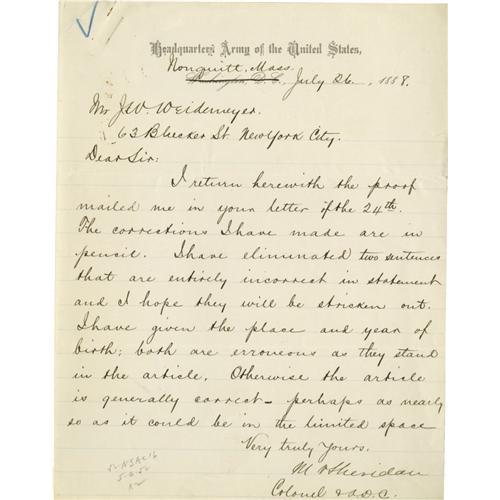 Headquarters Army of the United States,
Nonquitt, Mass.
Washington, D.C., July 26, 1888.
Mr J.W. Weidemeyer.
63 Bleecker St. New York City.
Dear Sir:
I return herewith the proof
mailed me in your letter of the 24th.
The corrections I have made are in
pencil. I have eliminated two sentences
that are entirely incorrect in statement
and I hope they will be stricken out.
I have given the place and year of
birth; both are erroneous as they stand
in the article. Otherwise the article
is generally correct – perhaps as nearly
so as it could be in the limited space
Very truly yours.
M V Sheridan
Colonel & A.D.C.